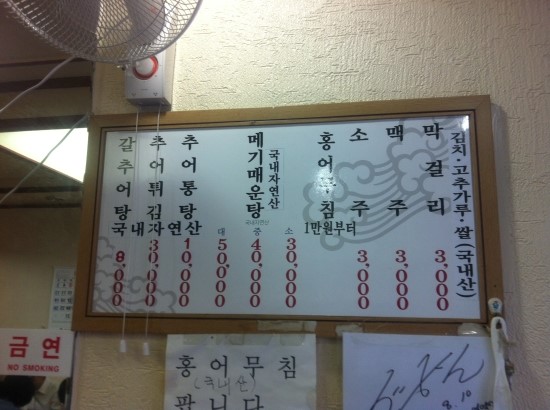 갈추어탕
8,000
추어튀김
30,000
추어통탕
10,000
국내자연산
메기매운탕
국내자연산
국내자연산
대 50,000
중 40,000
소 30,000
홍어무침
1만원부터
소주
3,000
맥주
3,000
막걸리
3,000
김치·고추가루·쌀(국내산)
금연
NO SMOKING
홍어무침
(국내산)
팝니다
8.10